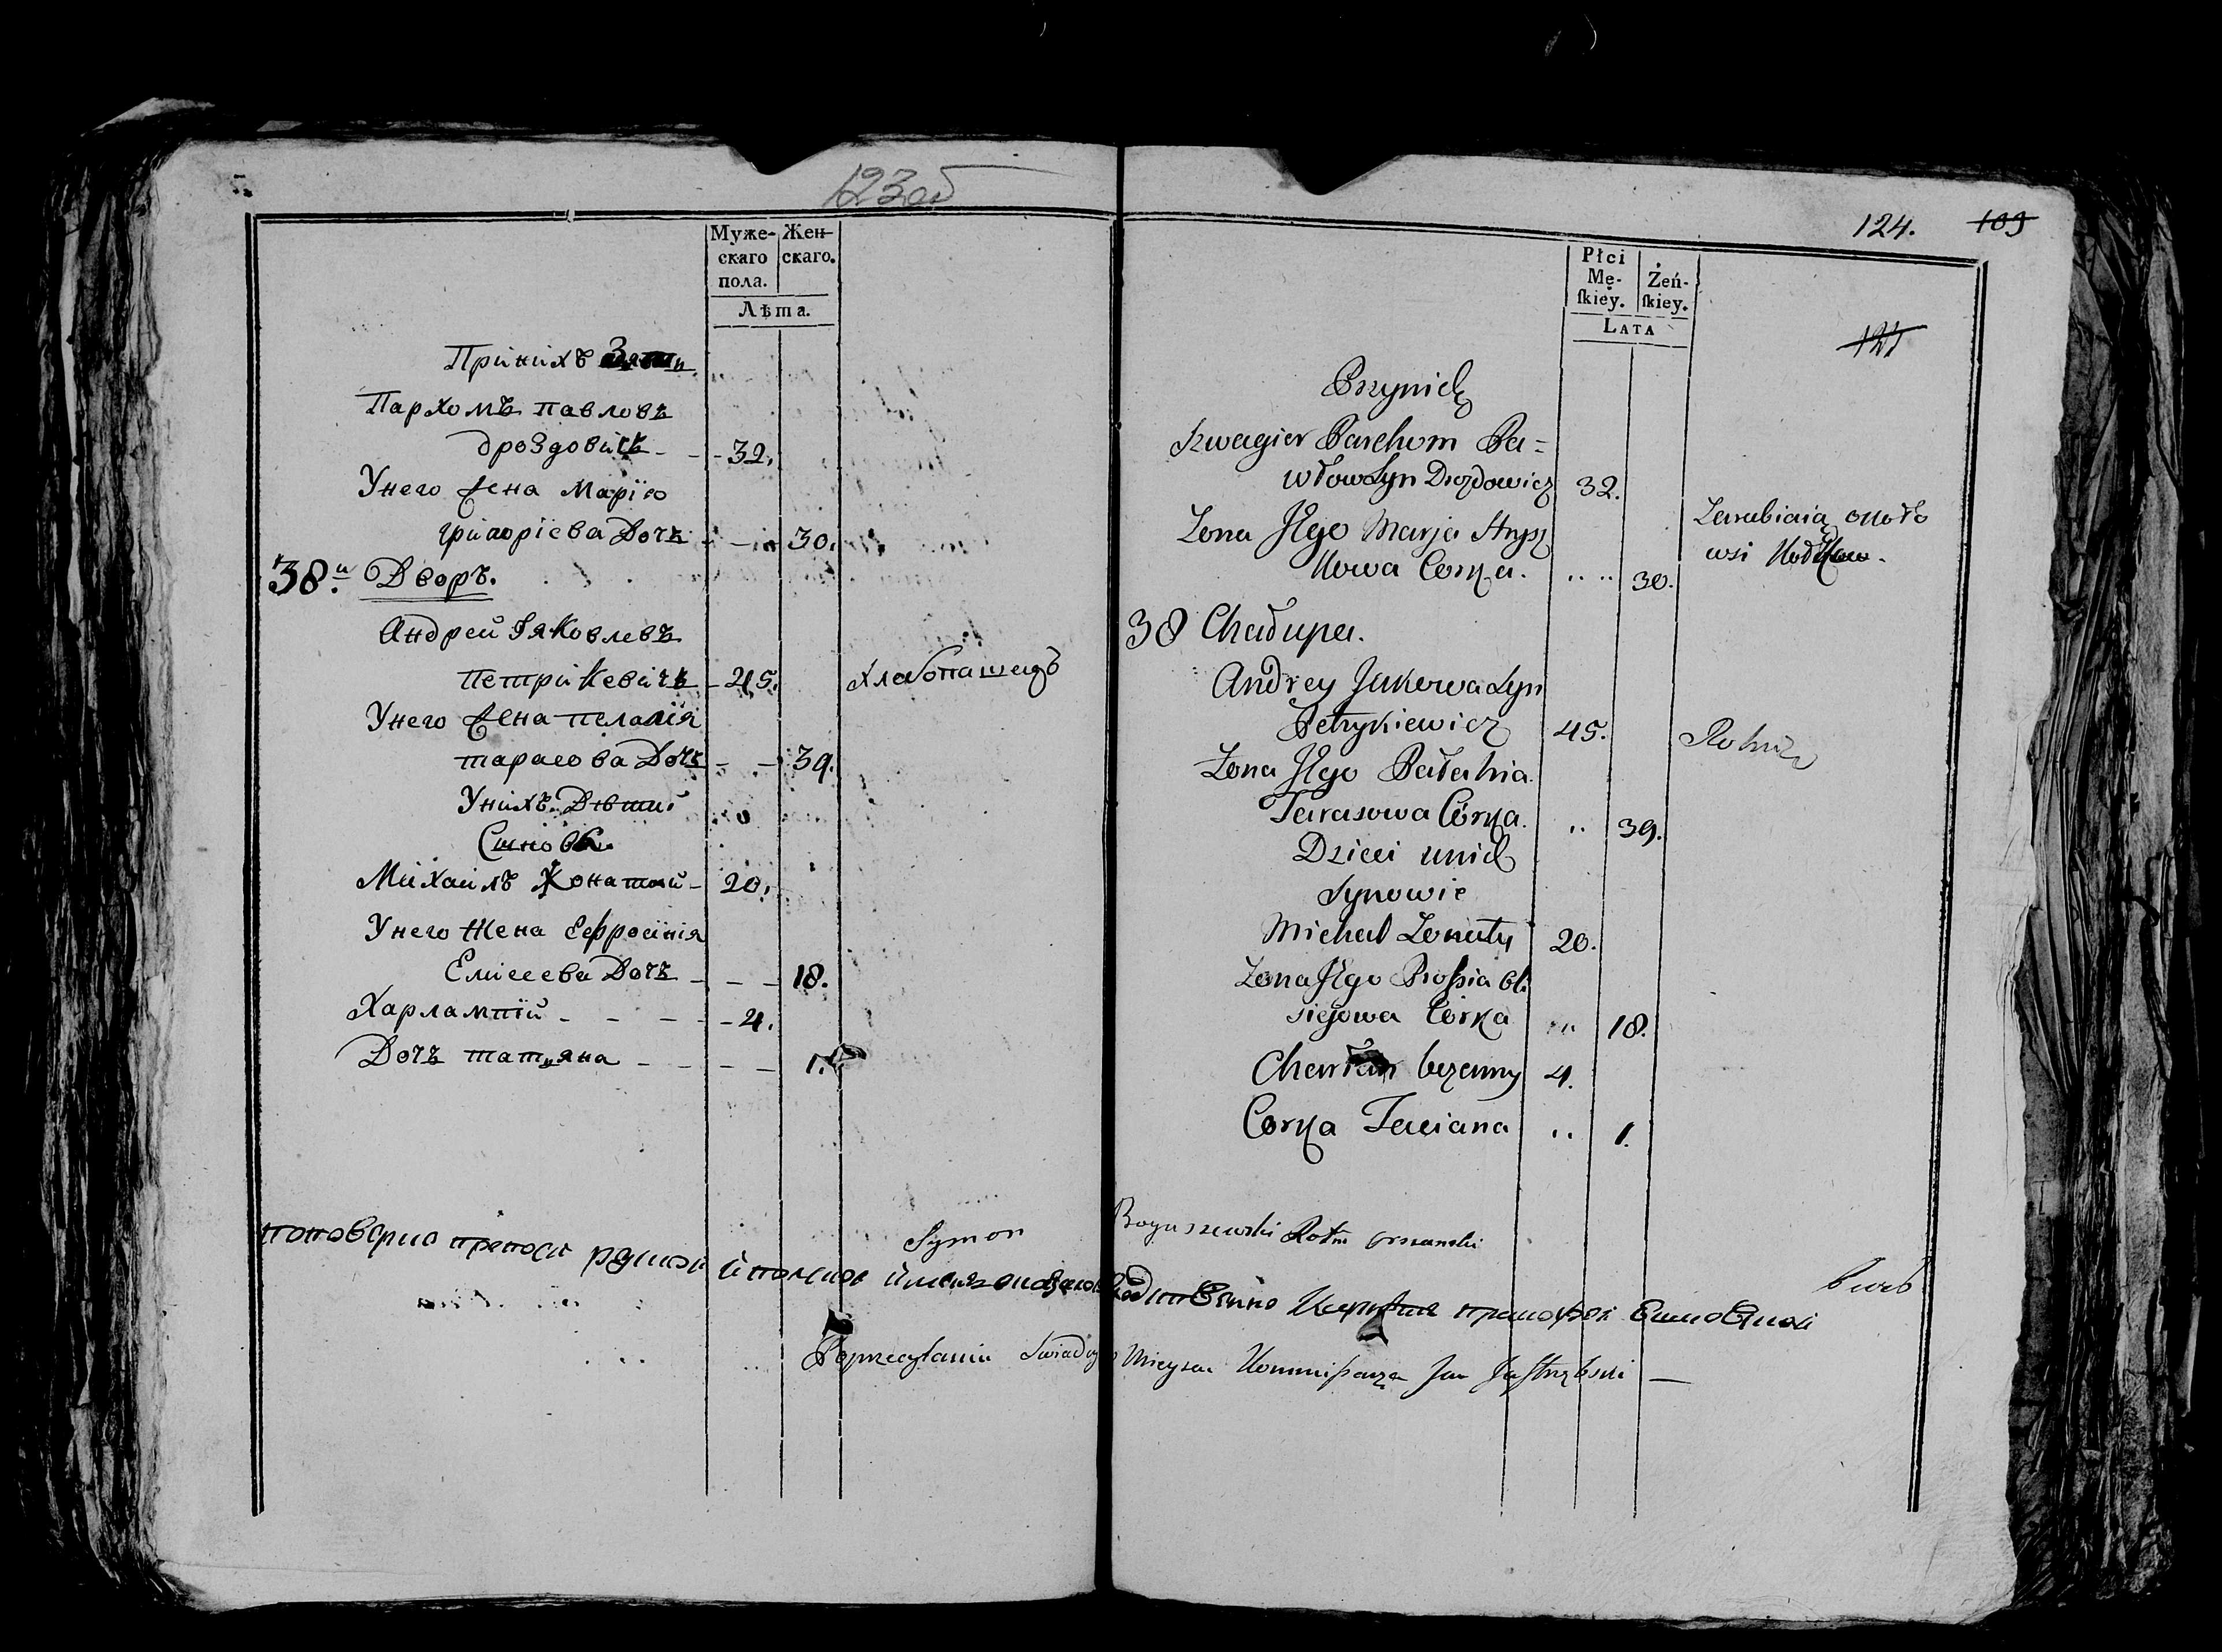 123об
Муже-
скаго
пола.
Жен-
скаго.
Лѣта.
Принихъ Зяти
Пархомъ павловъ
дроздовичъ - - 32.
Унего жена Марїю
григорїева Дочъ - - 30.
38й Дворъ.
Андрей Яковлевъ
петрикевичъ - 45. Хлебопашецъ
Унего жена пелагїя
тарасова Дочъ - - 39.
Унихъ Дѣти
Синовя
Михаилъ Жонатый - 20.
Унего Жена Ефросинїя
Елисеева Дочъ - - - 18.
Харлампїй - - - - 4.
Дочъ татияна - - - - 1.
Symon
124. 109
121
Płci
Mę-
ſkiey.
Żeń-
ſkiey.
LATA
Przynich
Szwagier Parchom Pa=
włow Syn Drozdowicz 32.
Zona Jego Marja Hrysz
Kowa Corka. .. .. 30.
Zarabiaią około
wsi
38 Chałupa.
Andrey Jakowa Syn
Petrykiewicz 45. Rolnik
Zona Jego Pałahia
Tarasowa Córka. .. 39.
Dzieci unich
Synowie
Michał Zonaty 20.
Zona Jego Prossia Eli
siejowa Córka .. 18.
bezenny 4.
Corka Taciana .. 1.
Boguszewski Rotm Orszanski
Poprzeczytaniu Swiadczę Mieysca Kommissarza Jan Jastrzębski